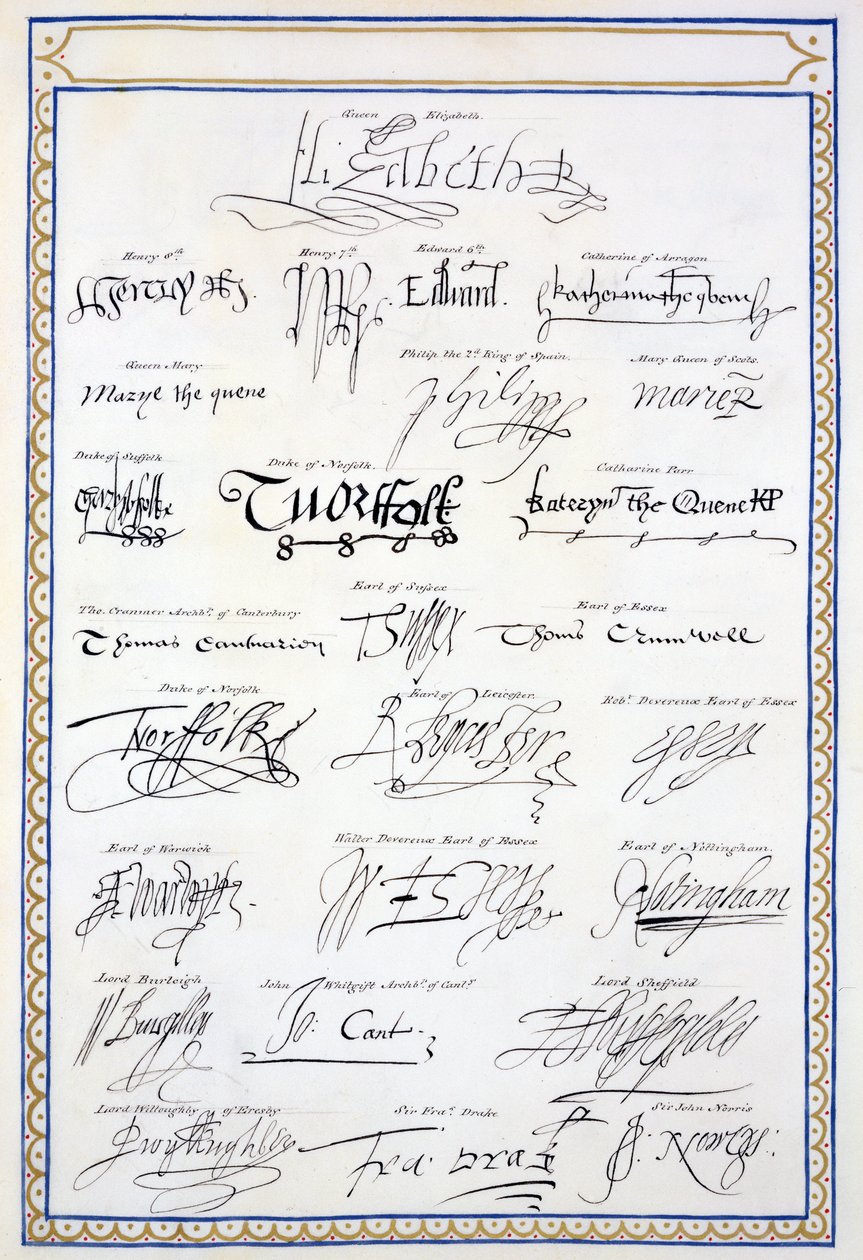 Queen Elizabeth.
Elizabeth R
Henry 8th Henry 7th Edward 6th Catherine of Arragon
Henry R. HR Edward. Katherina the qwene
Queen Mary Philip the 2d King of Spain. Mary Queen of Scots.
Marye the quene Philipp Marie R
Duke of Suffolk Duke of Norfolk. Catharine Parr
T Norffolk Kateryn the Quene KP
Tho. Cranmer Archbp. of Canterbury Earl of Sussex Earl of Essex
Thomas Cantuarien T Sussex Thoms Crumwell
Duke of Norfolk Earl of Leicester. Robt. Devereux Earl of Essex
T Norffolke R Leycester Essex
Earl of Warwick Walter Devereux Earl of Essex Earl of Nottingham.
W Essex Notingham
Lord Burleigh John Whitgift Archbp. of Cant.y Lord Sheffield
W Burghley Jo: Cant.
Lord Willoughby of Eresby Sir Fras. Drake Sir John Norris
Fra: Drak J: Norreys: